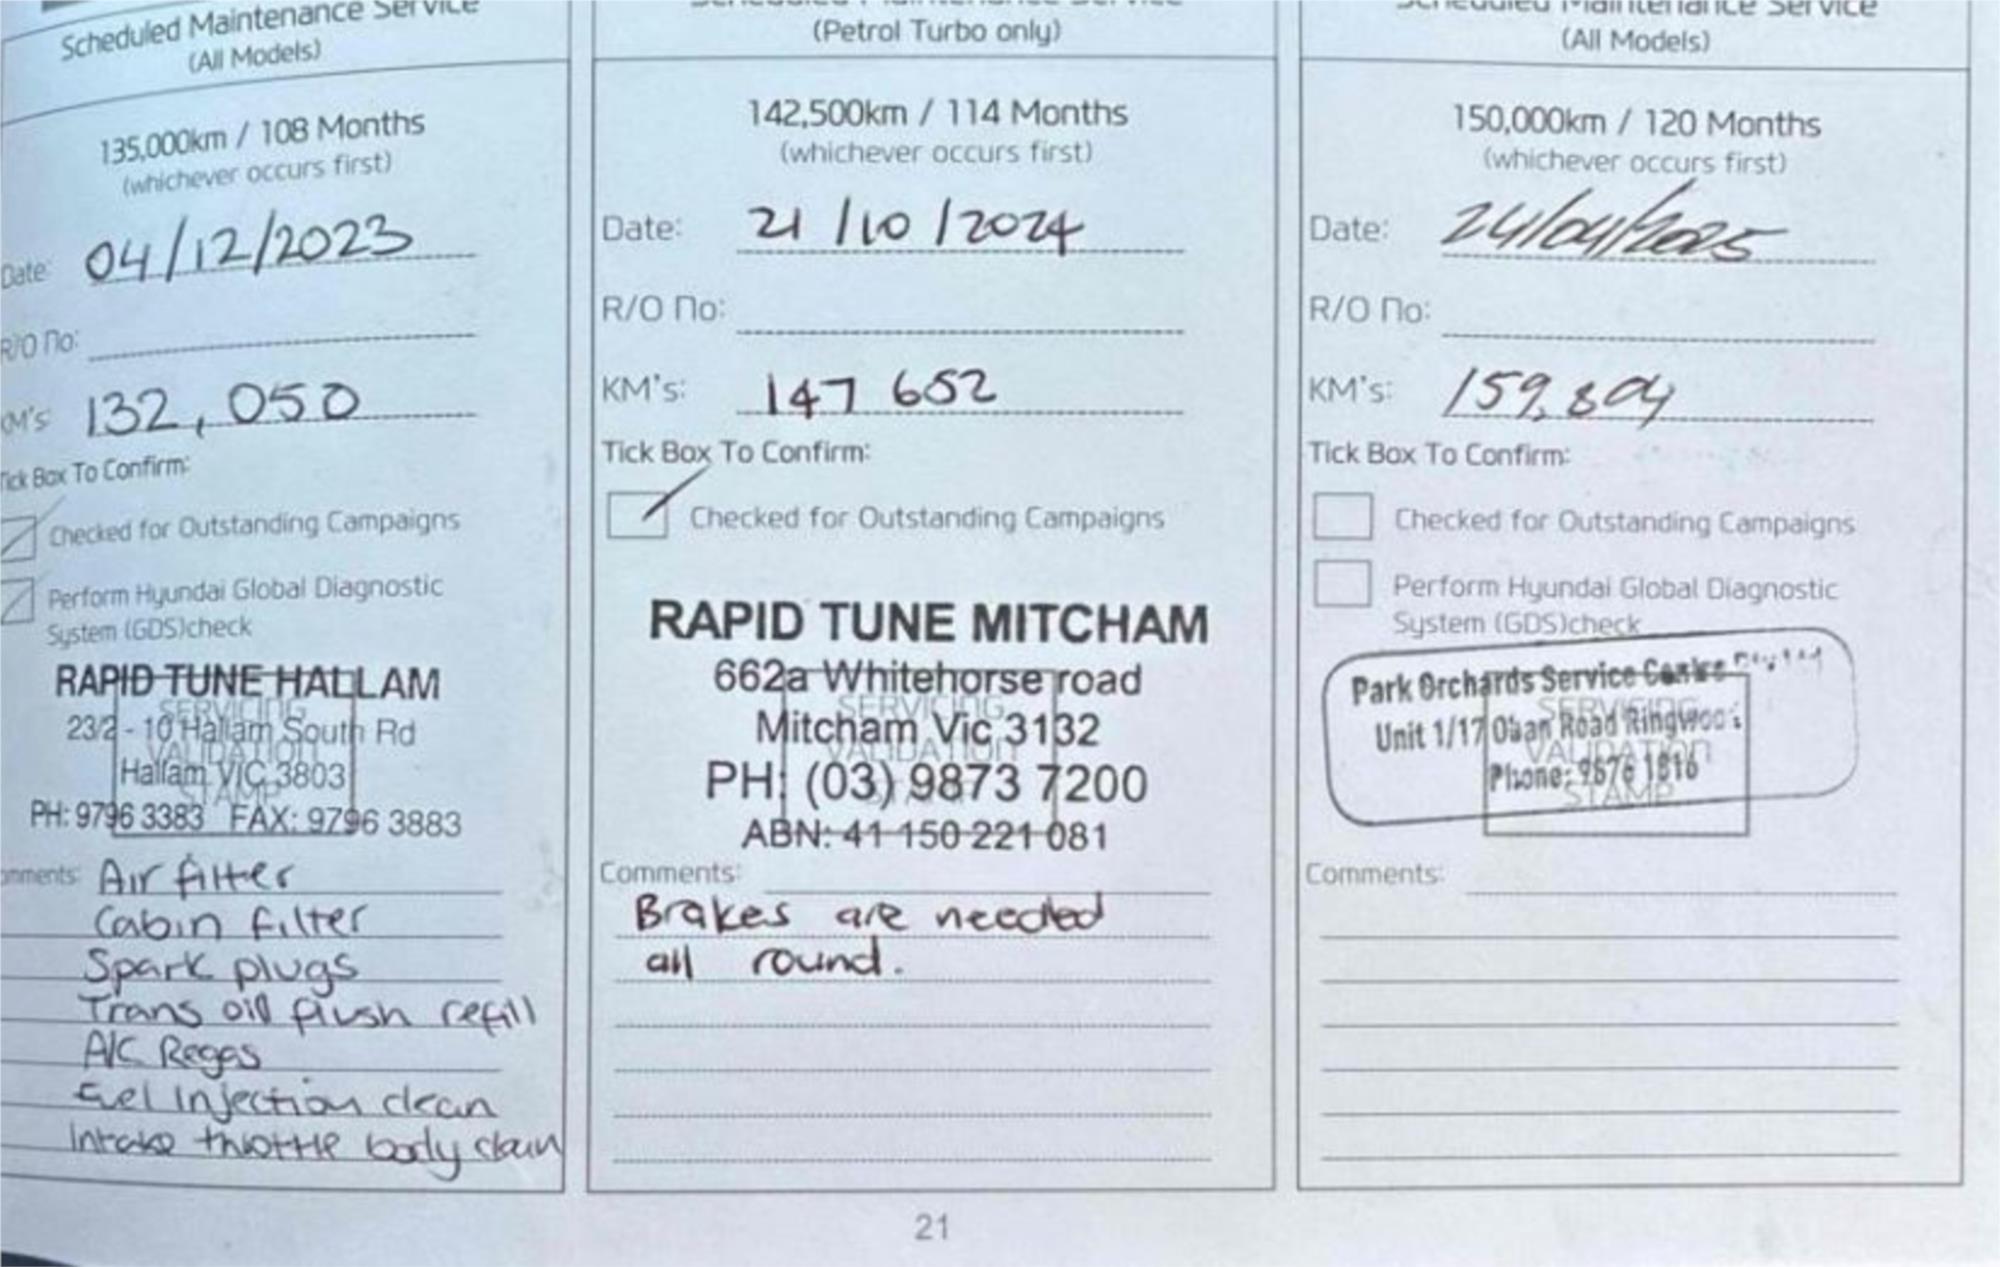 Scheduled Maintenance Service
(All Models)
135,000km / 108 Months
(whichever occurs first)
Date: 04/12/2023
R/O No:
KM's: 132,050
Tick Box To Confirm:
Checked for Outstanding Campaigns
Perform Hyundai Global Diagnostic
System (GDS)check
RAPID TUNE HALLAM
23/2 - 10 Hallam South Rd
Hallam VIC 3803
PH: 9796 3383 FAX: 9796 3883
SERVICING
VALIDATION
STAMP
Comments: Air filter
Cabin filter
Spark plugs
Trans oil flush refill
A/C Regas
Fuel Injection clean
Intake throttle body clean
Scheduled Maintenance Service
(Petrol Turbo only)
142,500km / 114 Months
(whichever occurs first)
Date: 21/10/2024
R/O No:
KM's: 147 652
Tick Box To Confirm:
Checked for Outstanding Campaigns
RAPID TUNE MITCHAM
662a Whitehorse road
Mitcham Vic 3132
PH: (03) 9873 7200
ABN: 41 150 221 081
SERVICING
VALIDATION
Comments:
Brakes are needed
all round.
Scheduled Maintenance Service
(All Models)
150,000km / 120 Months
(whichever occurs first)
Date: 24/04/2025
R/O No:
KM's: 159,804
Tick Box To Confirm:
Checked for Outstanding Campaigns
Perform Hyundai Global Diagnostic
System (GDS)check
Park Orchards Service Centre
Unit 1/17 Oban Road Ringwood
Phone: 9876 1816
SERVICING
VALIDATION
STAMP
Comments:
21